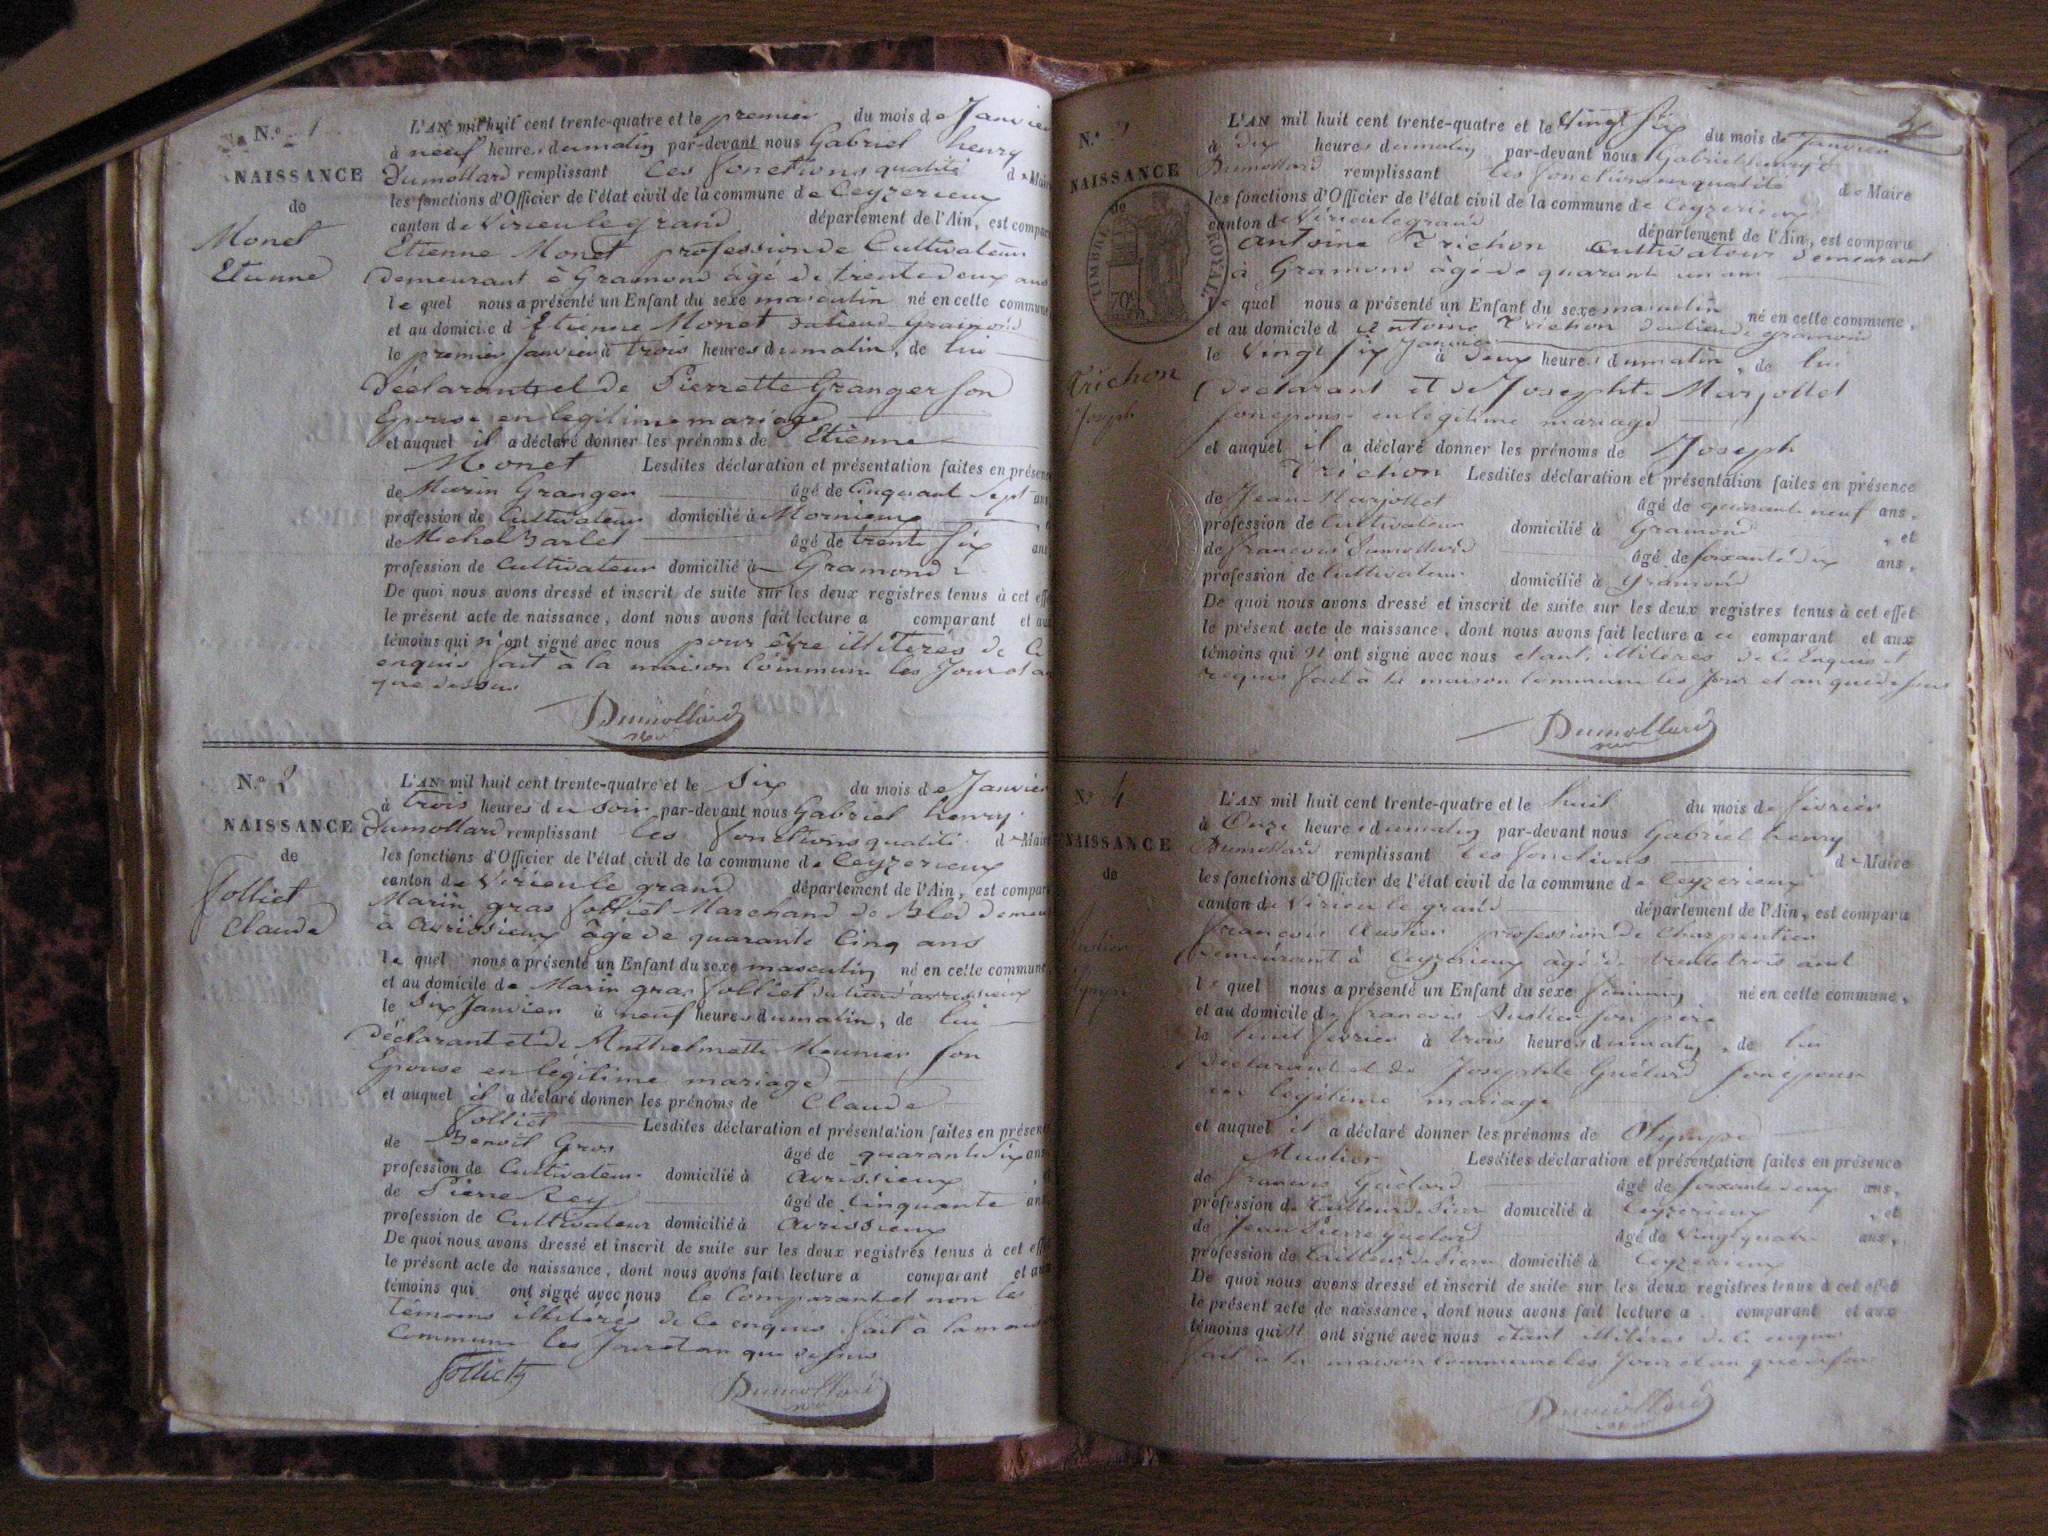 N.o 1
NAISSANCE
de
Monet
Etienne
L'AN mil huit cent trente-quatre et le premier du mois de Janvier
à neuf heures du matin par-devant nous Gabriel henry
Dumollard remplissant les fonctions qualité de Maire
les fonctions d'Officier de l'état civil de la commune de Ceyzerieux
canton de Virieu le grand département de l'Ain, est comparu
Etienne Monet profession de Cultivateur
demeurant à Gramond âgé de trente deux ans
le quel nous a présenté un Enfant du sexe masculin né en cette commune
et au domicile d Etienne Monet au lieu de Gramond
le premier Janvier à trois heures du matin, de lui
déclarant et de Pierrette Granger son
Epouse en legitime mariage
et auquel il a déclaré donner les prénoms de Etienne
Monet Lesdites déclaration et présentation faites en présence
de Marin Granger âgé de Cinquant sept ans
profession de Cultivateur domicilié à Mornieux
de Michel Barlet âgé de trente six ans
profession de Cultivateur domicilié à Gramond
De quoi nous avons dressé et inscrit de suite sur les deux registres tenus à cet effet
le présent acte de naissance, dont nous avons fait lecture a comparant et aux
témoins qui n'ont signé avec nous pour être illitérés de Ce
enquis fait à la maison Commune les Jour et an
que dessus
Dumollard
N.o 3
NAISSANCE
de
Jolliet
Claude
L'AN mil huit cent trente-quatre et le Six du mois de Janvier
à trois heures du soir par-devant nous Gabriel henry
Dumollard remplissant les fonctions qualité de Maire
les fonctions d'Officier de l'état civil de la commune de Ceyzerieux
canton de Virieu le grand département de l'Ain, est comparu
Marin gras Jolliet Marchand de Bled demeu
à Avrissieux âgé de quarante Cinq ans
le quel nous a présenté un Enfant du sexe masculin né en cette commune
et au domicile de Marin gras Jolliet au lieu d'avrissieux
le Six Janvier à neuf heures du matin, de lui
déclarant et de Anthelmette Meunier son
Epouse en légitime mariage
et auquel il a déclaré donner les prénoms de Claude
Jolliet Lesdites déclaration et présentation faites en présence
de Benoit Gros âgé de quarante Six ans
profession de Cultivateur domicilié à avrissieux
de Pierre Rey âgé de Cinquante ans
profession de Cultivateur domicilié à avrissieux
De quoi nous avons dressé et inscrit de suite sur les deux registres tenus à cet effet
le présent acte de naissance, dont nous avons fait lecture a comparant et aux
témoins qui ont signé avec nous le Comparant et non les
témoins illitérés de Ce enquis fait à la mais
Commune les Jour et an que dessus
Jolliet
Dumollard
N.o 2
NAISSANCE
de
TIMBRE ROYAL
70c
Trichon
Joseph
L'AN mil huit cent trente-quatre et le Vingt Six du mois de Janvier
à dix heures du matin par-devant nous Gabriel henry
Dumollard remplissant les fonctions en qualité de Maire
les fonctions d'Officier de l'état civil de la commune de Ceyzerieux
canton de Virieu le grand département de l'Ain, est comparu
Antoine Trichon Cultivateur demeurant
à Gramond âgé de quarant un ans
le quel nous a présenté un Enfant du sexe masculin né en cette commune,
et au domicile d Antoine Trichon au lieu de gramond
le Vingt Six Janvier à deux heures du matin, de lui
déclarant et de Josephte Marjollet
son epouse en legitime mariage
et auquel il a déclaré donner les prénoms de Joseph
Trichon Lesdites déclaration et présentation faites en présence
de Jean Marjollet âgé de quarante neuf ans,
profession de Cultivateur domicilié à Gramond, et
de francois Dumollard âgé de soixante dix ans,
profession de Cultivateur domicilié à Gramond
De quoi nous avons dressé et inscrit de suite sur les deux registres tenus à cet effet
le présent acte de naissance, dont nous avons fait lecture a ce comparant et aux
témoins qui n'ont signé avec nous etant illitéres de Ce Enquis et
requis fait à la maison Commune les Jour et an que dessus
Dumollard
N.o 4
NAISSANCE
de
L'AN mil huit cent trente-quatre et le huit du mois de fevrier
à Onze heures du matin par-devant nous Gabriel henry
Dumollard remplissant les fonctions de Maire
les fonctions d'Officier de l'état civil de la commune de Ceyzerieux
canton de Virieu le grand département de l'Ain, est comparu
francois Austier profession de Charpentier
demeurant à Ceyzerieux agé de trente trois ans
le quel nous a présenté un Enfant du sexe féminin né en cette commune,
et au domicile de francois Austier son père
le huit fevrier à trois heures du matin, de lui
déclarant et de Josephte Guélard son épouse
en legitime mariage
et auquel il a déclaré donner les prénoms de Olympe
Austier Lesdites déclaration et présentation faites en présence
de francois Guélard âgé de soixante deux ans,
profession de Tailleur de Pierre domicilié à Ceyzerieux, et
de Jean Pierre Guélard âgé de Vingt quatre ans,
profession de Tailleur de Pierre domicilié à Ceyzerieux
De quoi nous avons dressé et inscrit de suite sur les deux registres tenus à cet effet
le présent acte de naissance, dont nous avons fait lecture a comparant et aux
témoins qui n'ont signé avec nous etant illitéres de Ce enquis
fait à la maison Commune les Jour et an que dessus
Dumollard